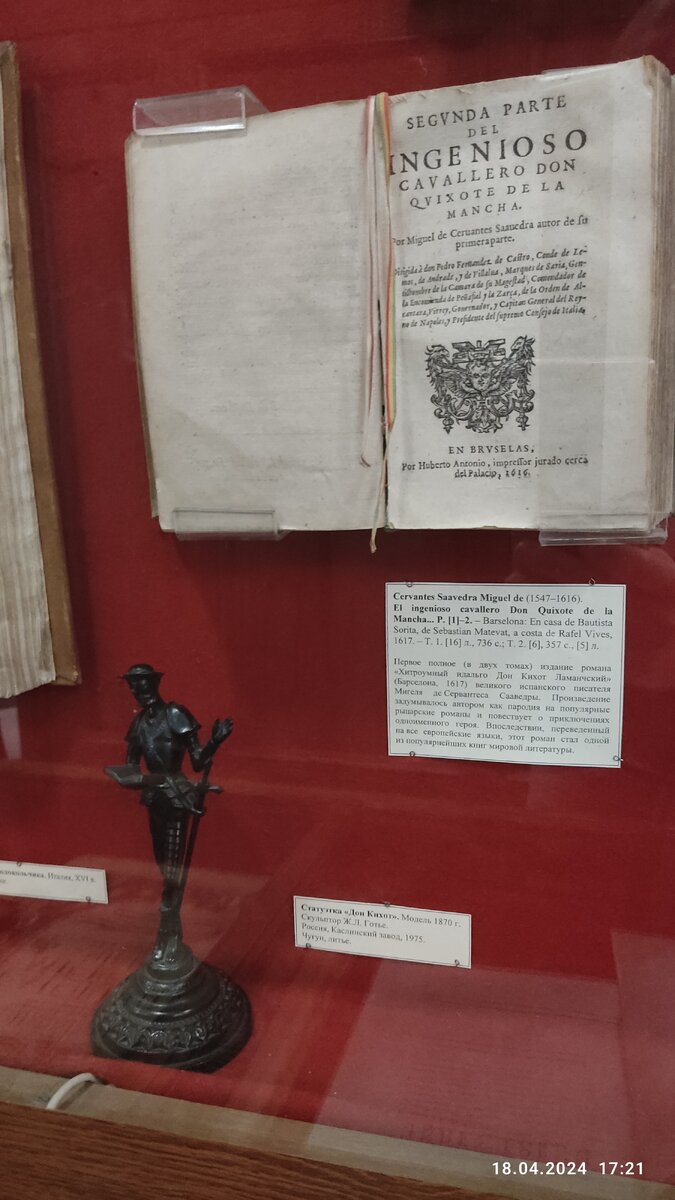 SEGVNDA PARTE
DEL
INGENIOSO
CAVALLERO DON
QVIXOTE DE LA
MANCHA.
Por Miguel de Ceruantes Saauedra autor de su
primera parte.
Dirigida à don Pedro Fernandez de Castro, Conde de Le-
mos, de Andrade, y de Villalua, Marques de Saria, Gen-
tilhombre de la Camara de su Magestad, Comendador de
la Encomienda de Peñafiel y la Zarça, de la Orden de Al-
cantara, Virrey, Gouernador, y Capitan General del Rey-
no de Napoles, y Presidente del supremo Consejo de Italia.
EN BRVSELAS,
Por Huberto Antonio, impressor jurado cerca
del Palacio, 1616.
Cervantes Saavedra Miguel de (1547–1616).
El ingenioso cavallero Don Quixote de la
Mancha... P. [1]–2. – Barselona: En casa de Bautista
Sorita, de Sebastian Matevat, a costa de Rafel Vives,
1617. – T. 1. [16] л., 736 с.; Т. 2. [6], 357 с., [5] л.
Первое полное (в двух томах) издание романа
«Хитроумный идальго Дон Кихот Ламанчский»
(Барселона, 1617) великого испанского писателя
Мигеля де Сервантеса Сааведры. Произведение
задумывалось автором как пародия на популярные
рыцарские романы и повествует о приключениях
одноименного героя. Впоследствии, переведенный
на все европейские языки, этот роман стал одной
из популярнейших книг мировой литературы.
Италия, XVI в.
Статуэтка «Дон Кихот». Модель 1870 г.
Скульптор Ж.Л. Готье.
Россия, Каслинский завод, 1975.
Чугун, литье.
18.04.2024 17:21